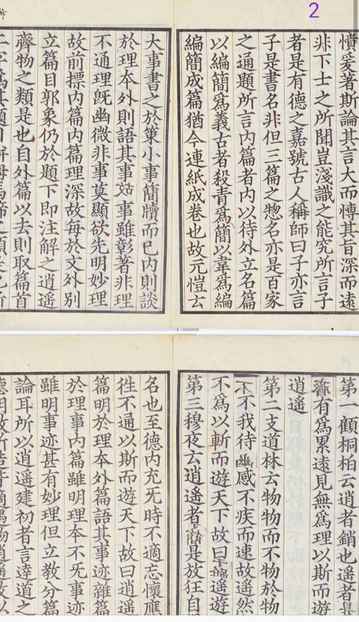 憤爰著斯論其言大而博其旨深而遠
非下士之所聞豈淺識之能究所言子
者是有德之嘉號古人稱師曰子亦言
子是書名非但三篇之惣名亦是百家
之通題所言內篇者內以待外立名篇
以編簡爲義古者殺青爲簡以韋爲編
編簡成篇猶今連紙成卷也故元愷云
大事書之於策小事簡牘而已內則談
於理本外則語其事迹事雖彰著非理
不通理旣幽微非事莫顯欲先明妙理
故前標內篇內篇理深故每於文外別
立篇目郭象仍於題下即注解之逍遙
齊物之類是也自外篇以去則取篇首
2
第一顧桐柏云逍者銷也遙者
有爲累遠見無爲理以斯而遊
逍遙
第二支道林云物物而不物於物
不我待感不疾而速故遙然
不爲以斯而遊天下故曰逍遙遊
第三穆夜云逍遙者是放狂自
名也至德內充无時不適忘懷應
徃不通以斯而遊天下故曰逍遙
篇明於理本外篇語其事迹雜篇
於理事內篇雖明理本不无事迹
雖明事迹甚有妙理但立教分篇
論耳所以逍遙建初者言達道之